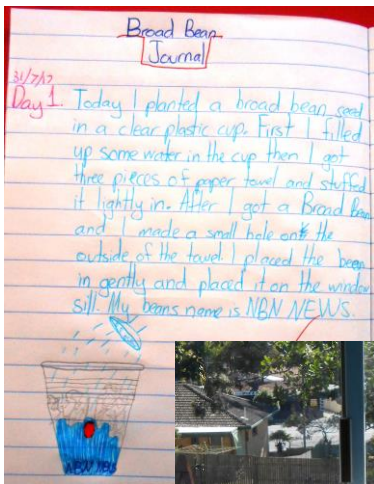 Broad Bean
Journal
31/7/17
Day 1. Today I planted a broad bean seed
in a clear plastic cup. First I filled
up some water in the cup then I got
three pieces of paper towel and stuffed
it lightly in. After I got a Broad Bean
and I made a small hole on the
outside of the towel I placed the been
in gently and placed it on the window
sill. My beans name is NBN NEWS.
NBN NEWS